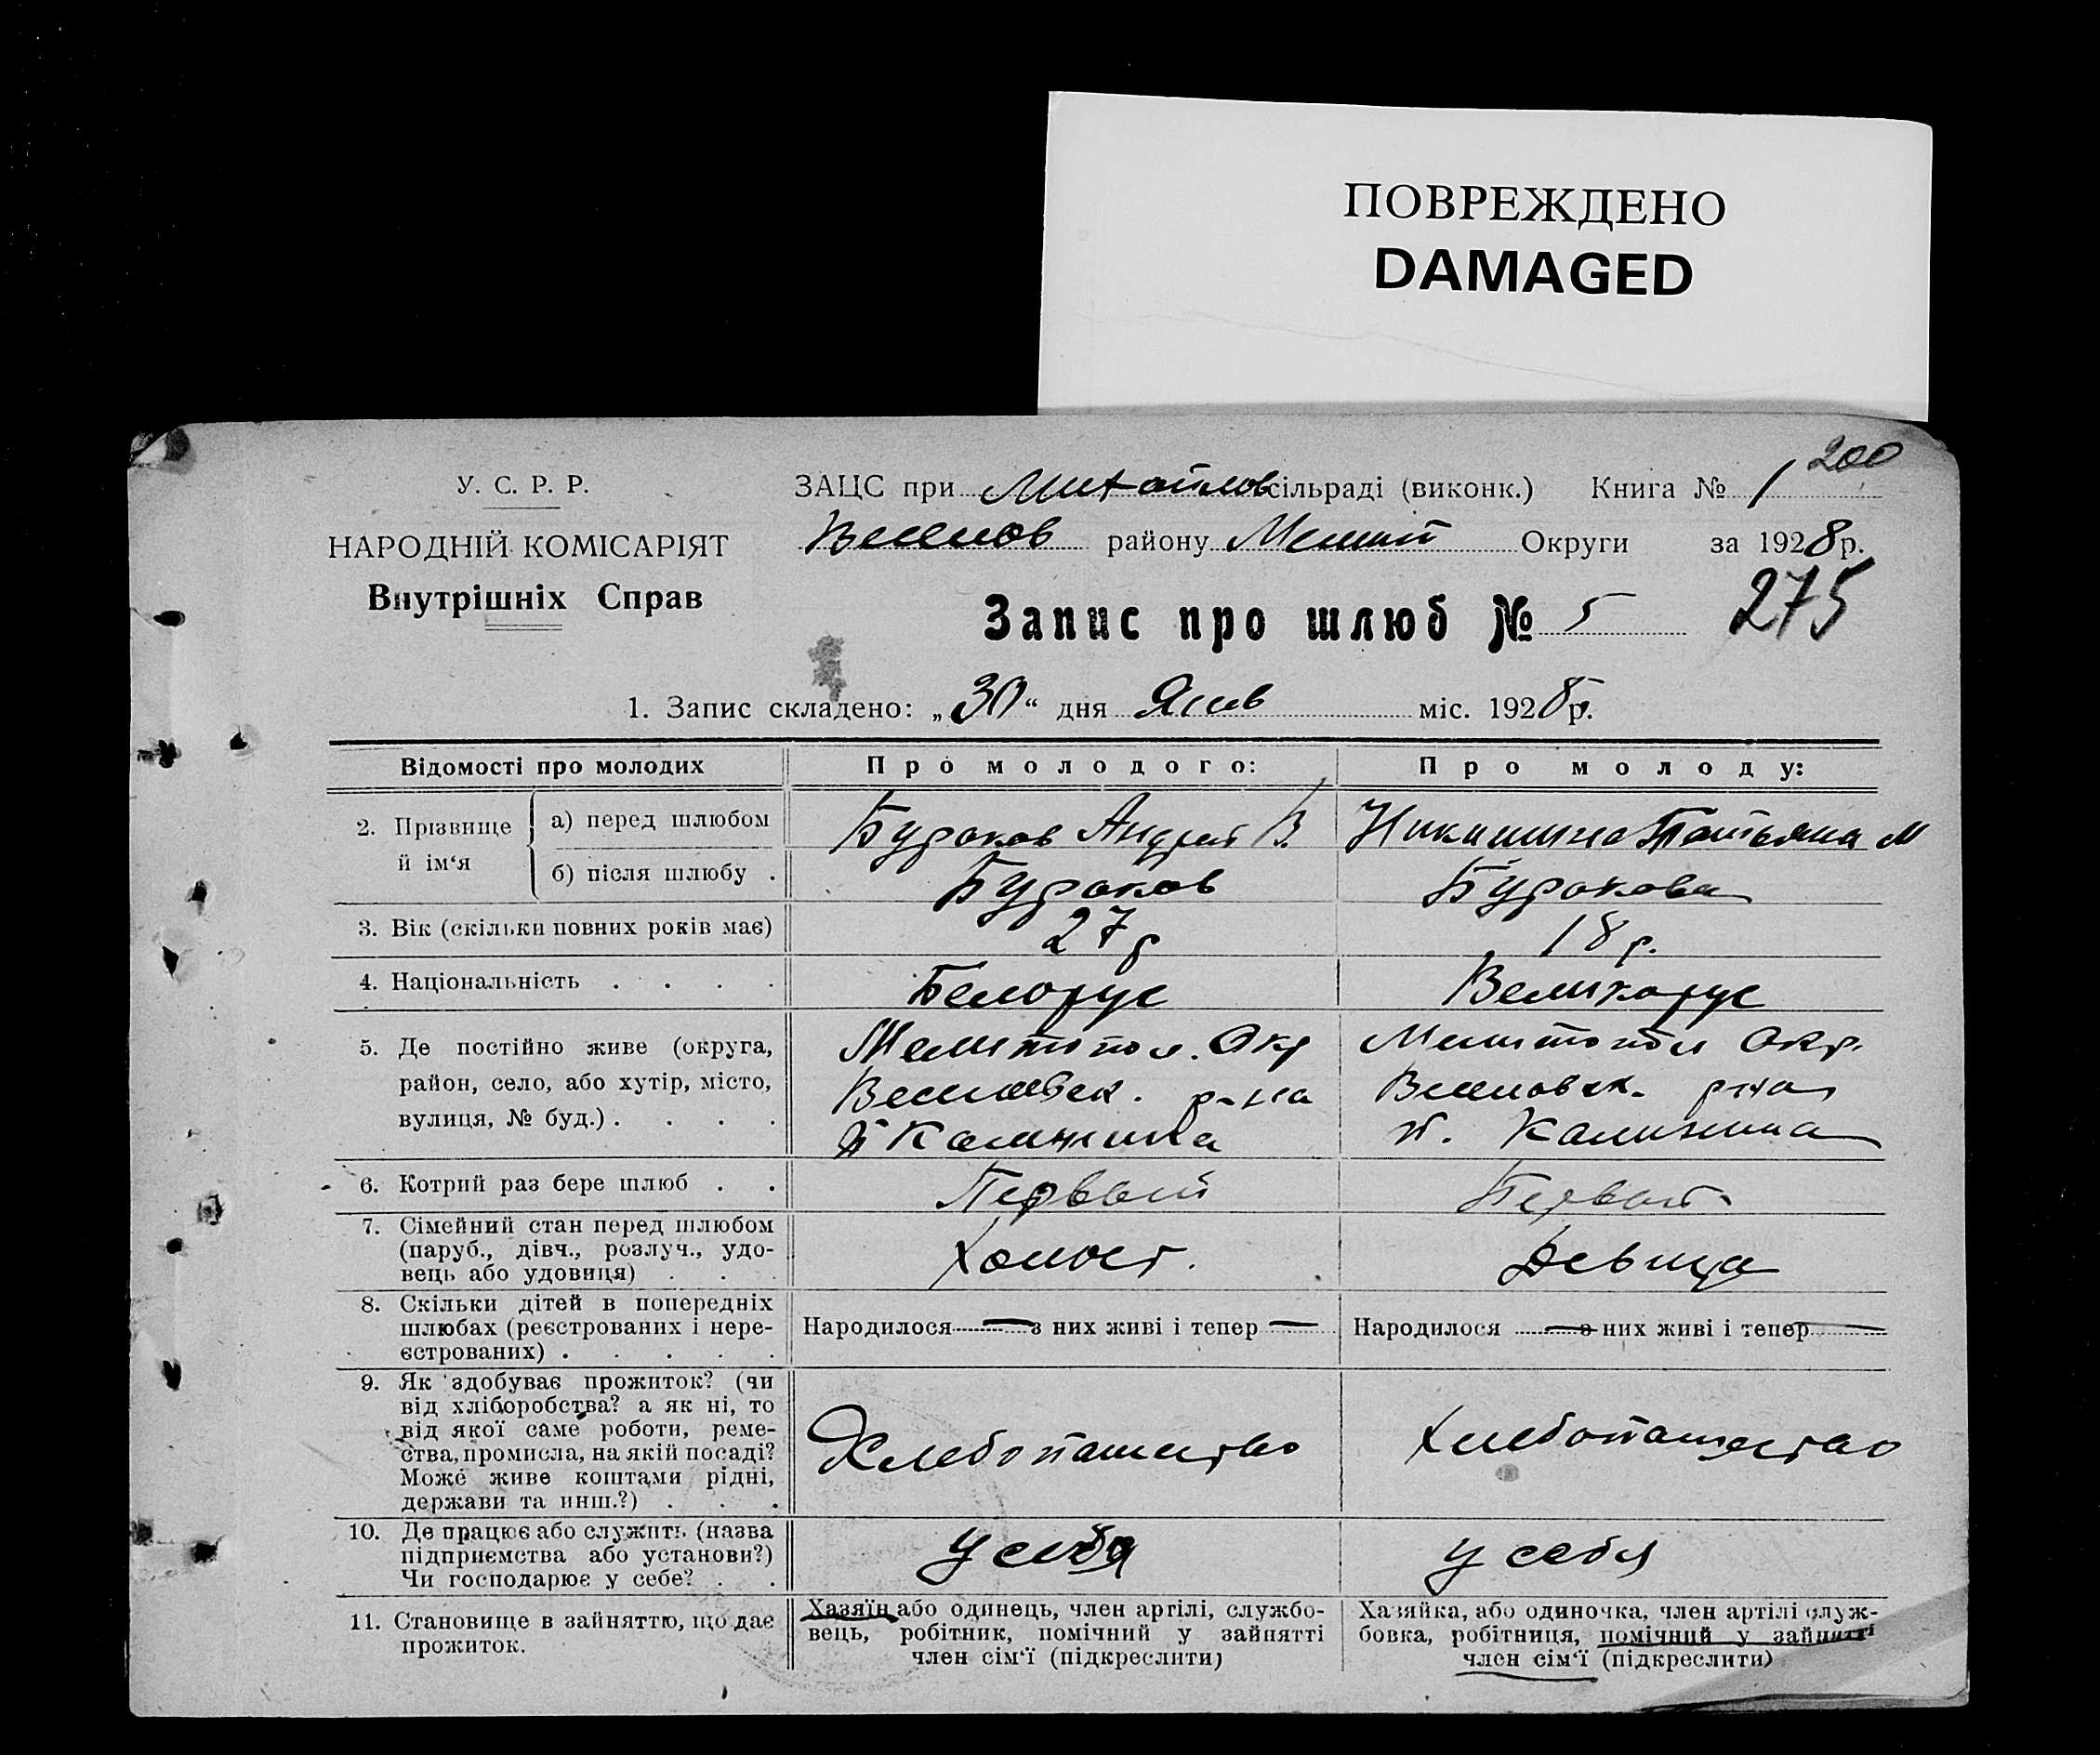 ПОВРЕЖДЕНО
DAMAGED
200
У. С. Р. Р.
НАРОДНІЙ КОМІСАРІЯТ
Внутрішніх Справ
ЗАЦС при Михайлов сільраді (виконк.) Книга № 1
району Мелит Округи за 1928 р.
Запис про шлюб № 5
275
1. Запис складено: „30“ дня Янв міс. 1928 р.
Відомості про молодих
Про молодого:
Про молоду:
2. Прізвище й ім‘я
а) перед шлюбом
Бураков Андрей В.
Никишина Татьяна М
б) після шлюбу .
Бураков
Буракова
3. Вік (скільки повних років має)
27 р
18 р.
4. Національність . . . .
Белорус
Великорус
5. Де постійно живе (округа,
район, село, або хутір, місто,
вулиця, № буд.) . . . .
Мелитопол. Окр
р-на
п Калинина
Мелитопол Окр.
р-на
п. Калинина
6. Котрий раз бере шлюб . .
Первый
Первый
7. Сімейний стан перед шлюбом
(паруб., дівч., розлуч., удо-
вець або удовиця) . . .
Холост.
Девица
8. Скільки дітей в попередніх
шлюбах (реєстрованих і нере-
єстрованих) . . . . .
Народилося — з них живі і тепер —
Народилося — з них живі і тепер —
9. Як здобуває прожиток? (чи
від хліборобства? а як ні, то
від якої саме роботи, реме-
ства, промисла, на якій посаді?
Може живе коштами рідні,
держави та инш.?) . . .
Хлебопашество
Хлебопашество
10. Де працює або служить (назва
підприємства або установи?)
Чи господарює у себе? . .
у себя
у себя
11. Становище в зайняттю, що дає
прожиток.
Хазяїн або одинець, член артілі, службо-
вець, робітник, помічний у зайнятті
член сім‘ї (підкреслити)
Хазяйка, або одиночка, член артілі служ-
бовка, робітниця, помічний у зайнятті
член сім‘ї (підкреслити)